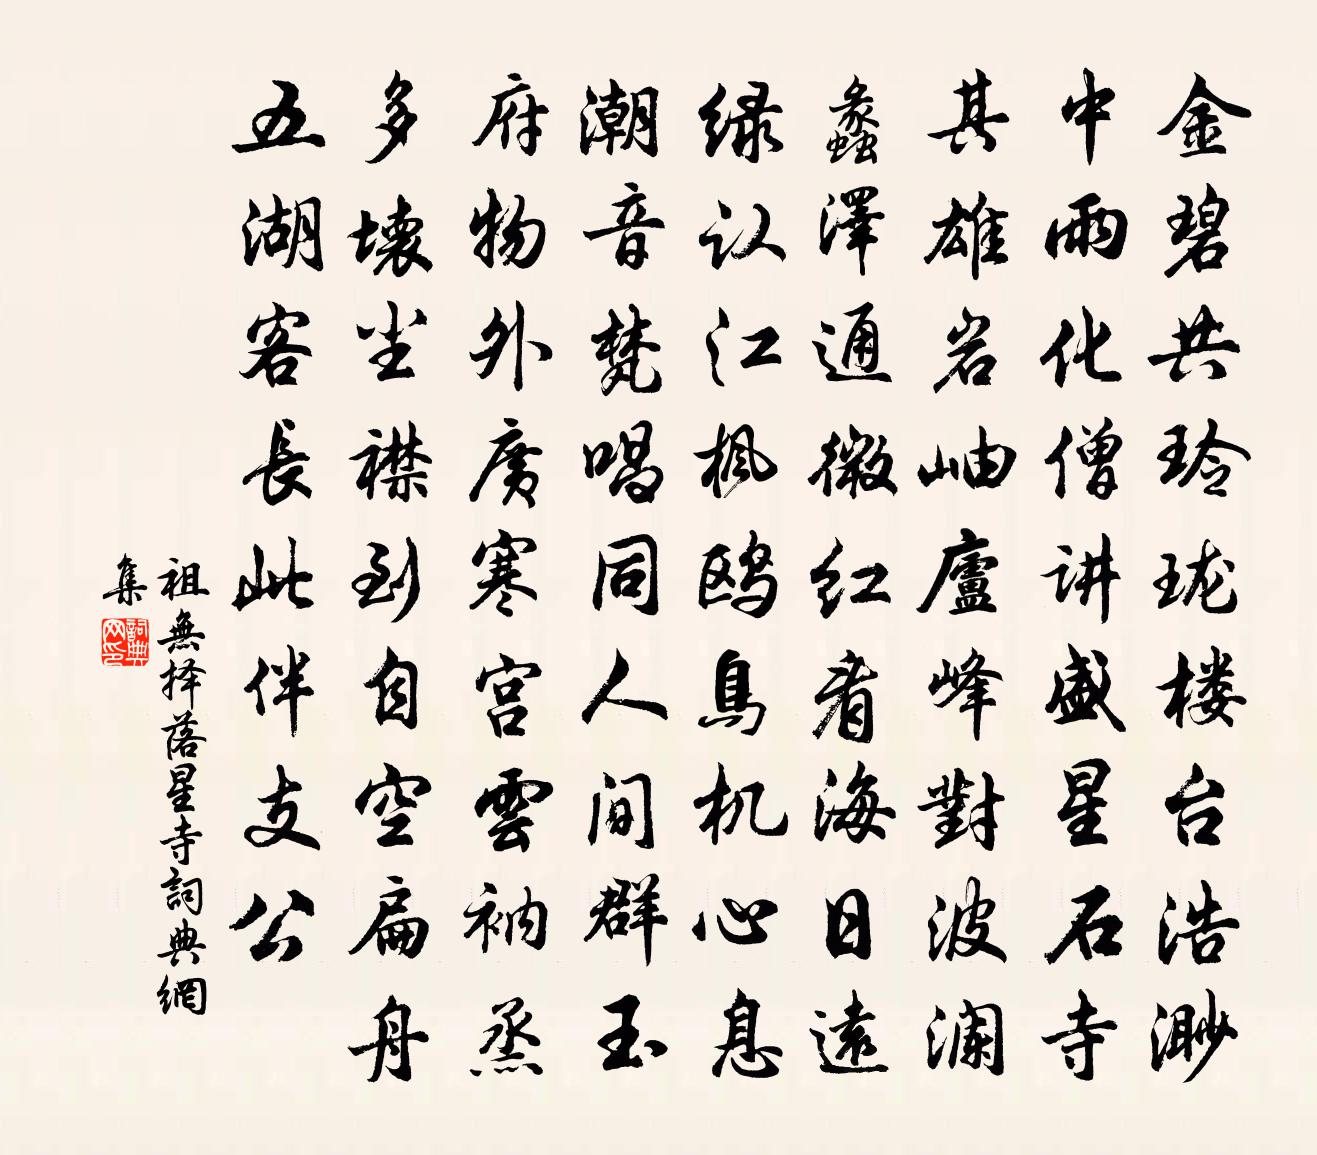 金碧共玲珑楼台浩渺
中雨化僧讲盛星石寺
其雄岩岫廬峰對波澜
蠡澤通微红看海日远
绿认江枫鸥鳥机心息
潮音梵唱同人间群玉
府物外廣寒宫雲衲烝
多壊坐襟到自空扁舟
五湖客長此伴支公
祖無择落星寺詞典網
集
詞典网印